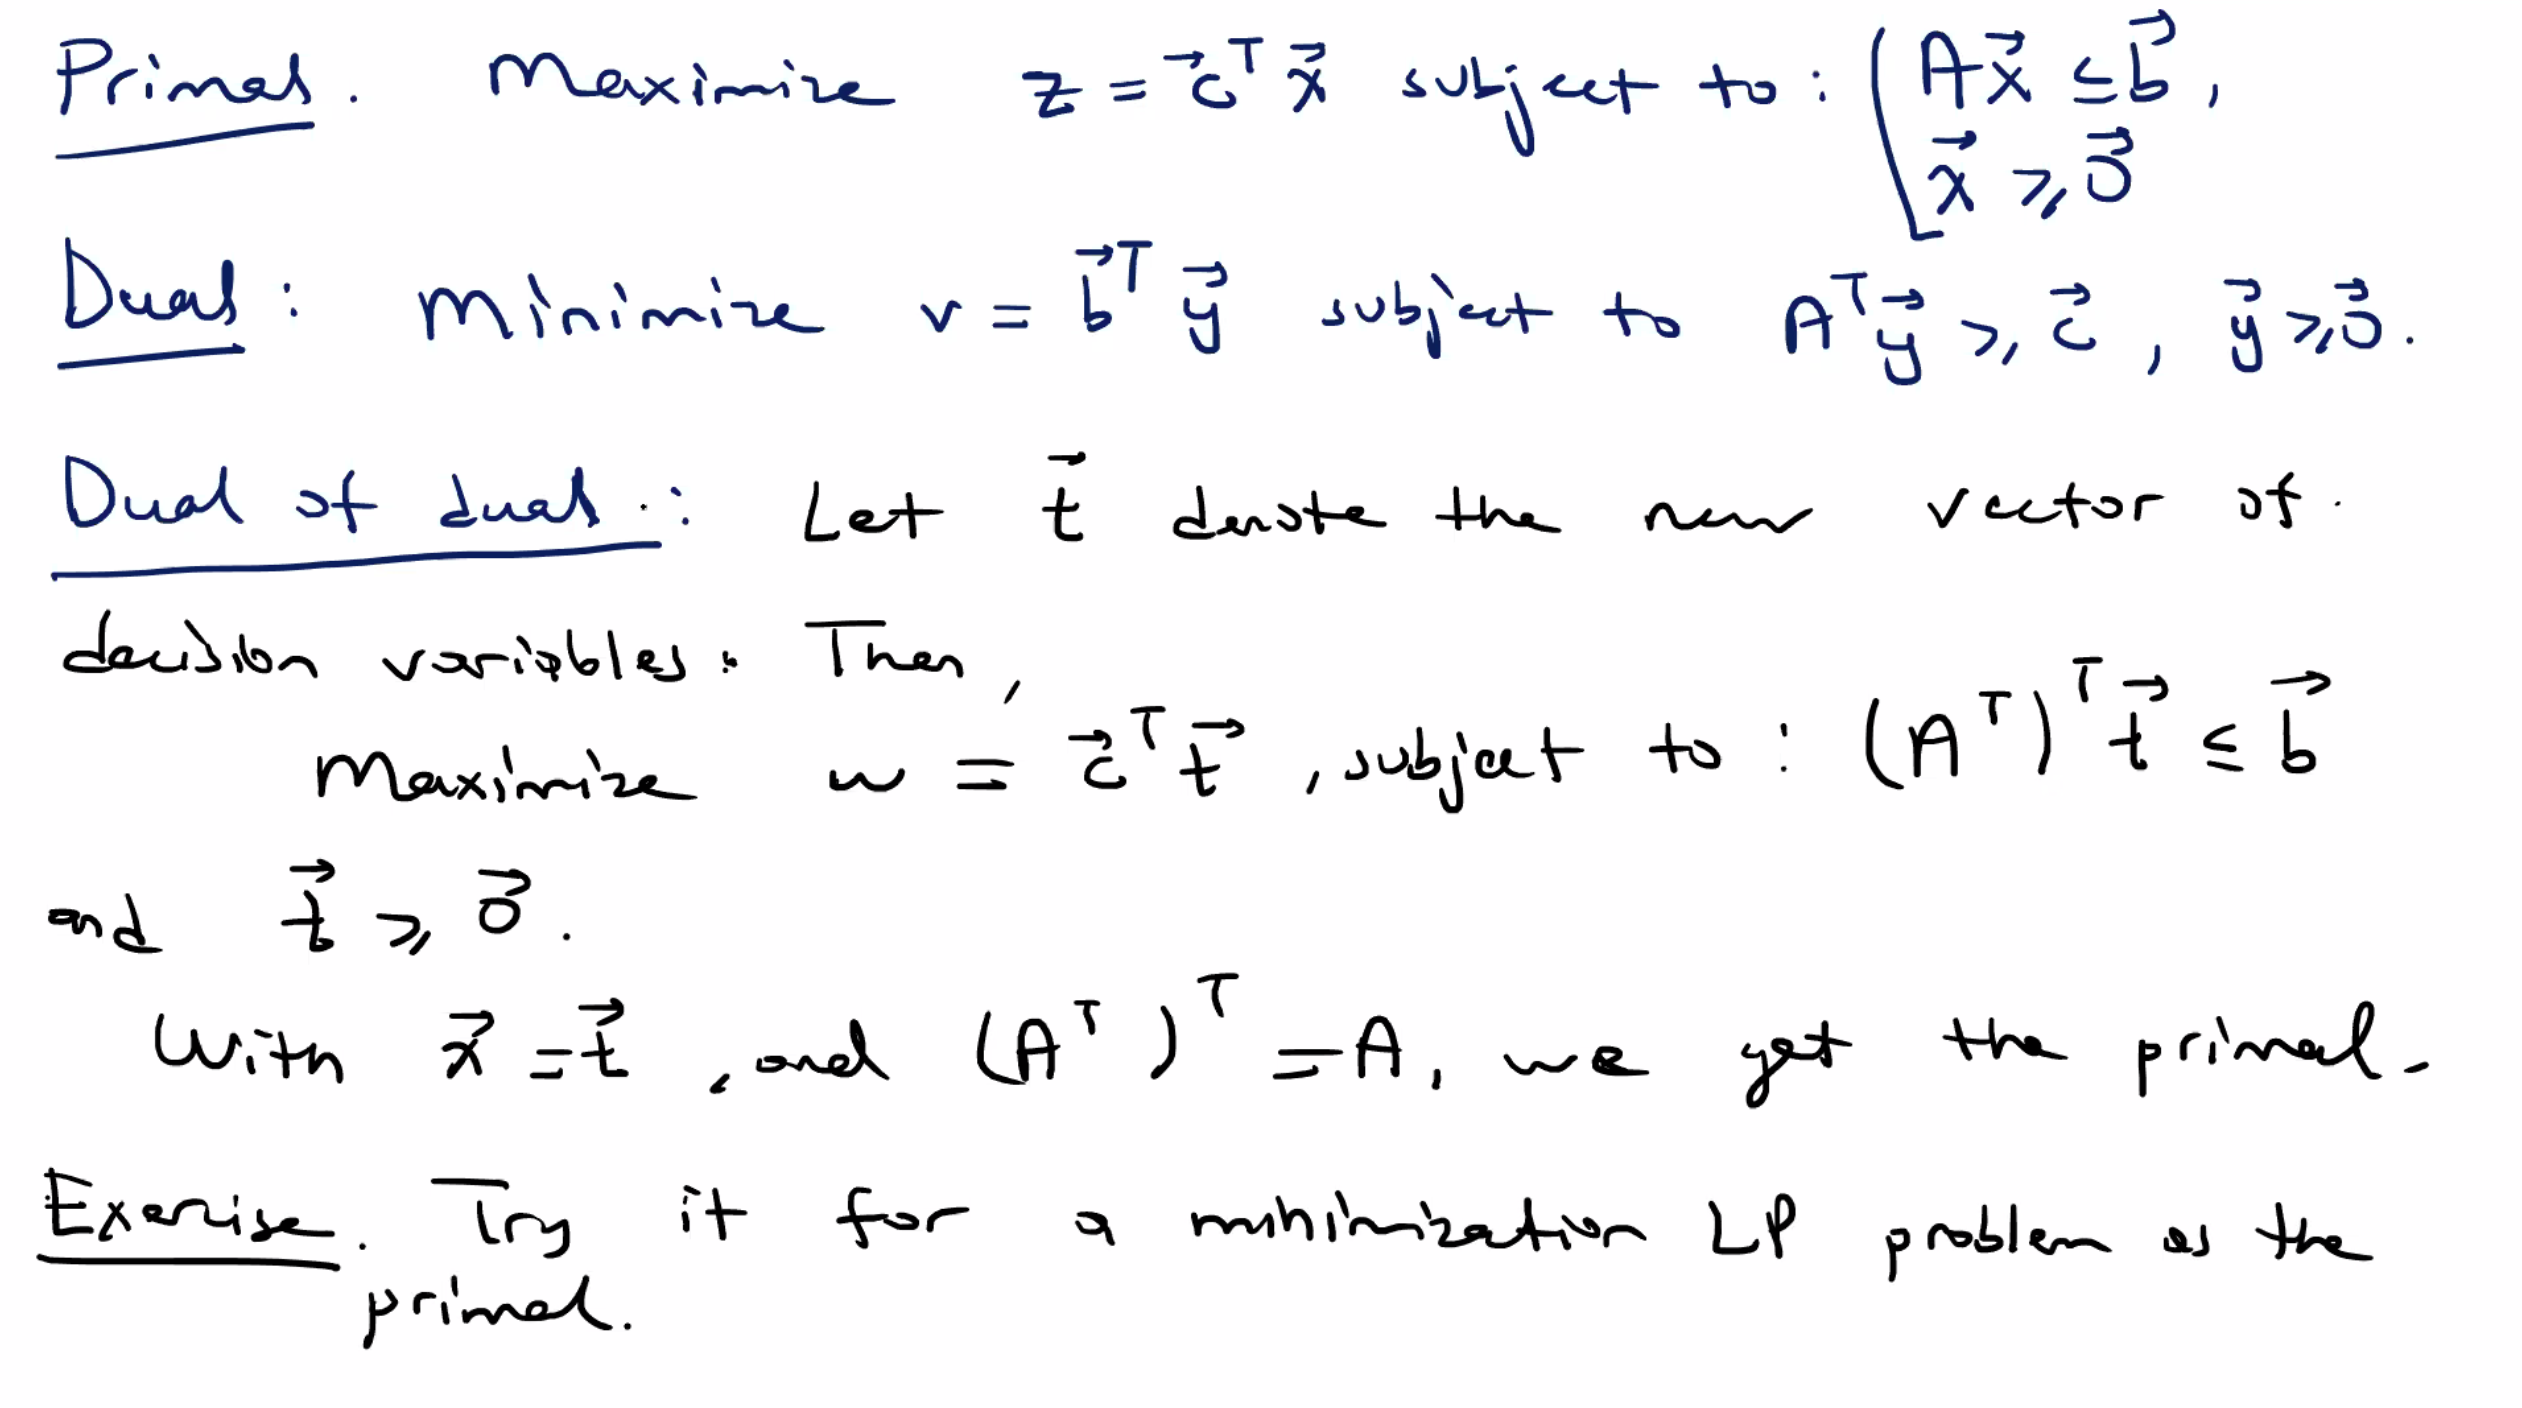 Primal. Maximize z = c⃗ᵀ x⃗ subject to: [ A x⃗ ≤ b⃗ ,
x⃗ ⩾ 0⃗
Dual: Minimize v = b⃗ᵀ y⃗ subject to Aᵀ y⃗ ⩾ c⃗ , y⃗ ⩾ 0⃗ .
Dual of dual: Let t⃗ denote the new vector of
decision variables. Then,
Maximize w = c⃗ᵀ t⃗ , subject to: (Aᵀ)ᵀ t⃗ ≤ b⃗
and t⃗ ⩾ 0⃗ .
With x⃗ = t⃗ , and (Aᵀ)ᵀ = A, we get the primal.
Exercise. Try it for a minimization LP problem as the
primal.